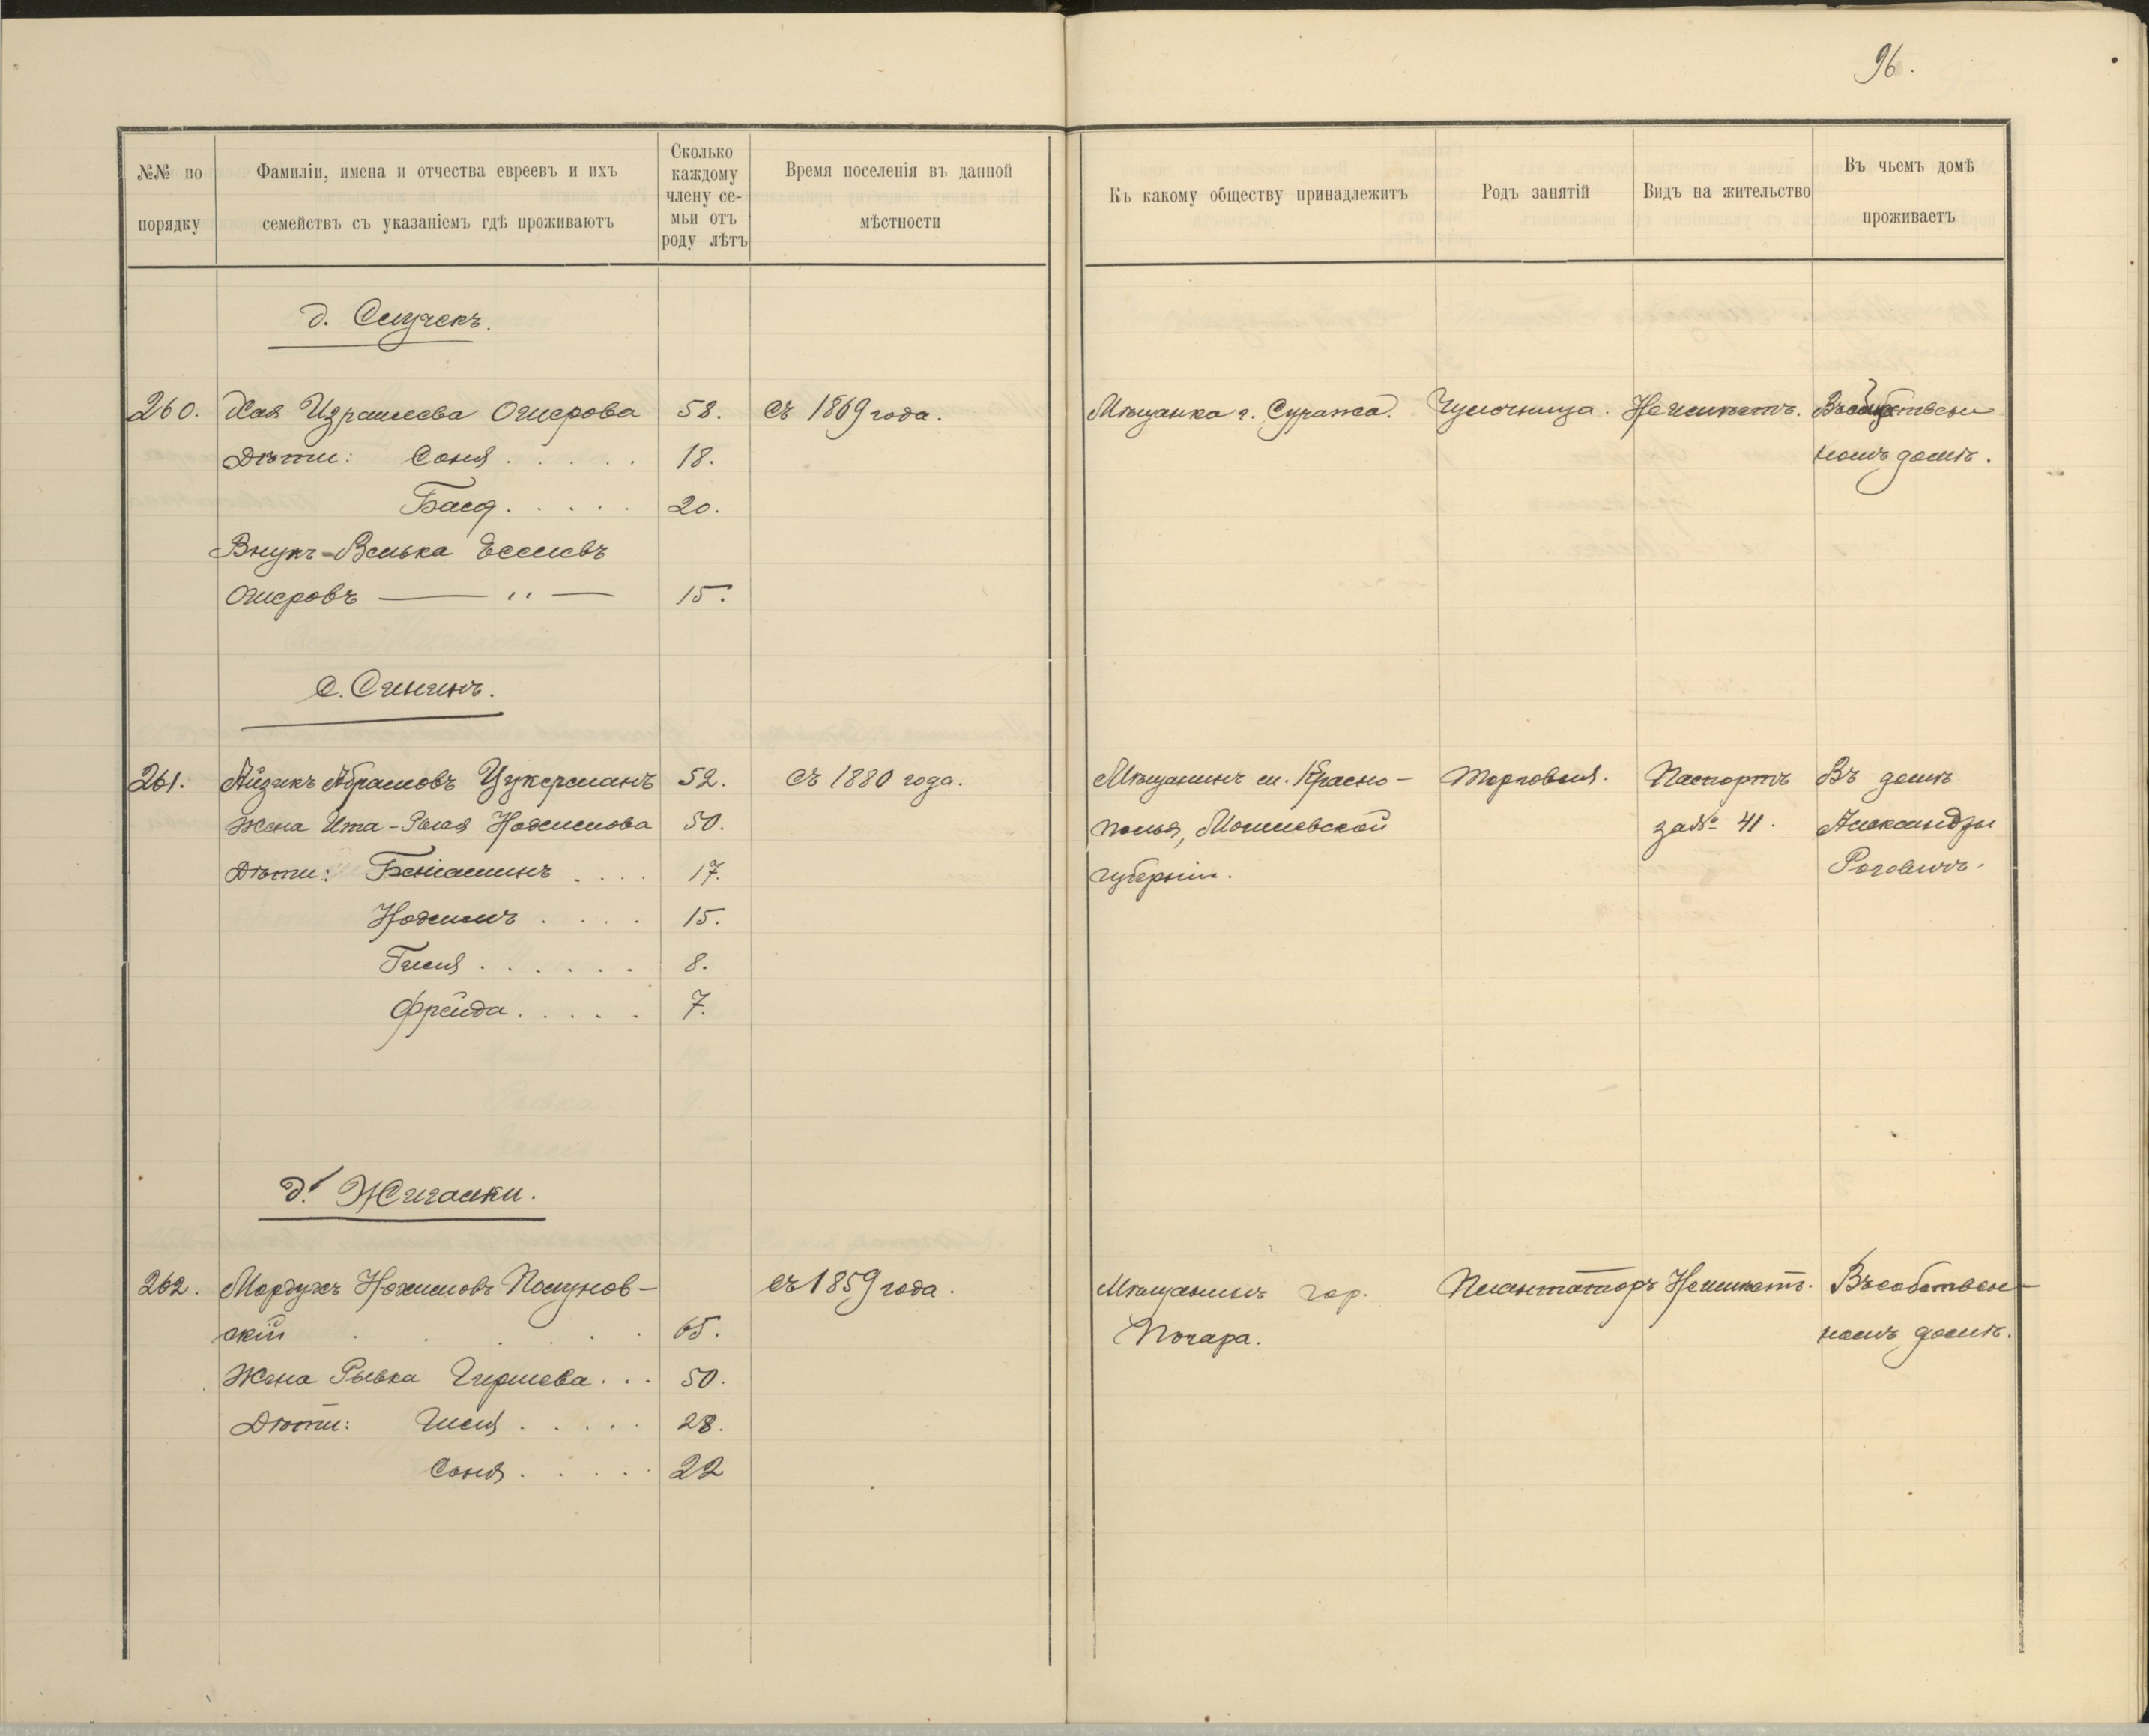 96.
№№ по порядку
Фамиліи, имена и отчества евреевъ и ихъ
семействъ съ указаніемъ гдѣ проживаютъ
Сколько
каждому
члену се-
мьи отъ
роду лѣтъ
Время поселенія въ данной
мѣстности
Къ какому обществу принадлежитъ
Родъ занятій
Видъ на жительство
Въ чьемъ домѣ
проживаетъ
д. Случекъ.
260. Хая Израилева Ошерова 58. Съ 1869 года. Мѣщанка г. Суража. Чулочница. Неимѣетъ. Въ собствен
Дѣти: Соня 18. номъ домѣ.
Бася 20.
Внукъ-Велька
Ошеровъ — " — 15.
С. Сининъ.
261. Айзикъ Абрамовъ Цукерманъ 52. Съ 1880 года. Мѣщанинъ м. Красно- Торговля. Паспортъ Въ домѣ
Жена Ита-Рыся Нохимова 50. полья, Могилевской за № 41. Александры
Дѣти: Беніаминъ 17. губерніи. Роговичъ.
Нохимъ 15.
Гися 8.
Фрейда 7.
д. Жигалки.
262. Мордухъ Нохимовъ Полунов- Съ 1859 года. Мѣщанинъ гор. Плантаторъ Неимѣетъ. Въ собствен-
скій 65. Почара. номъ домѣ.
Жена Рывка Гиршева 50.
Дѣти: Гися 28.
Соня 22